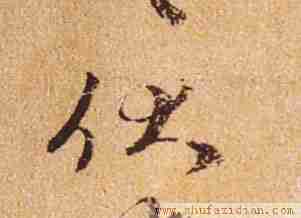 伏
www.shufazidian.com